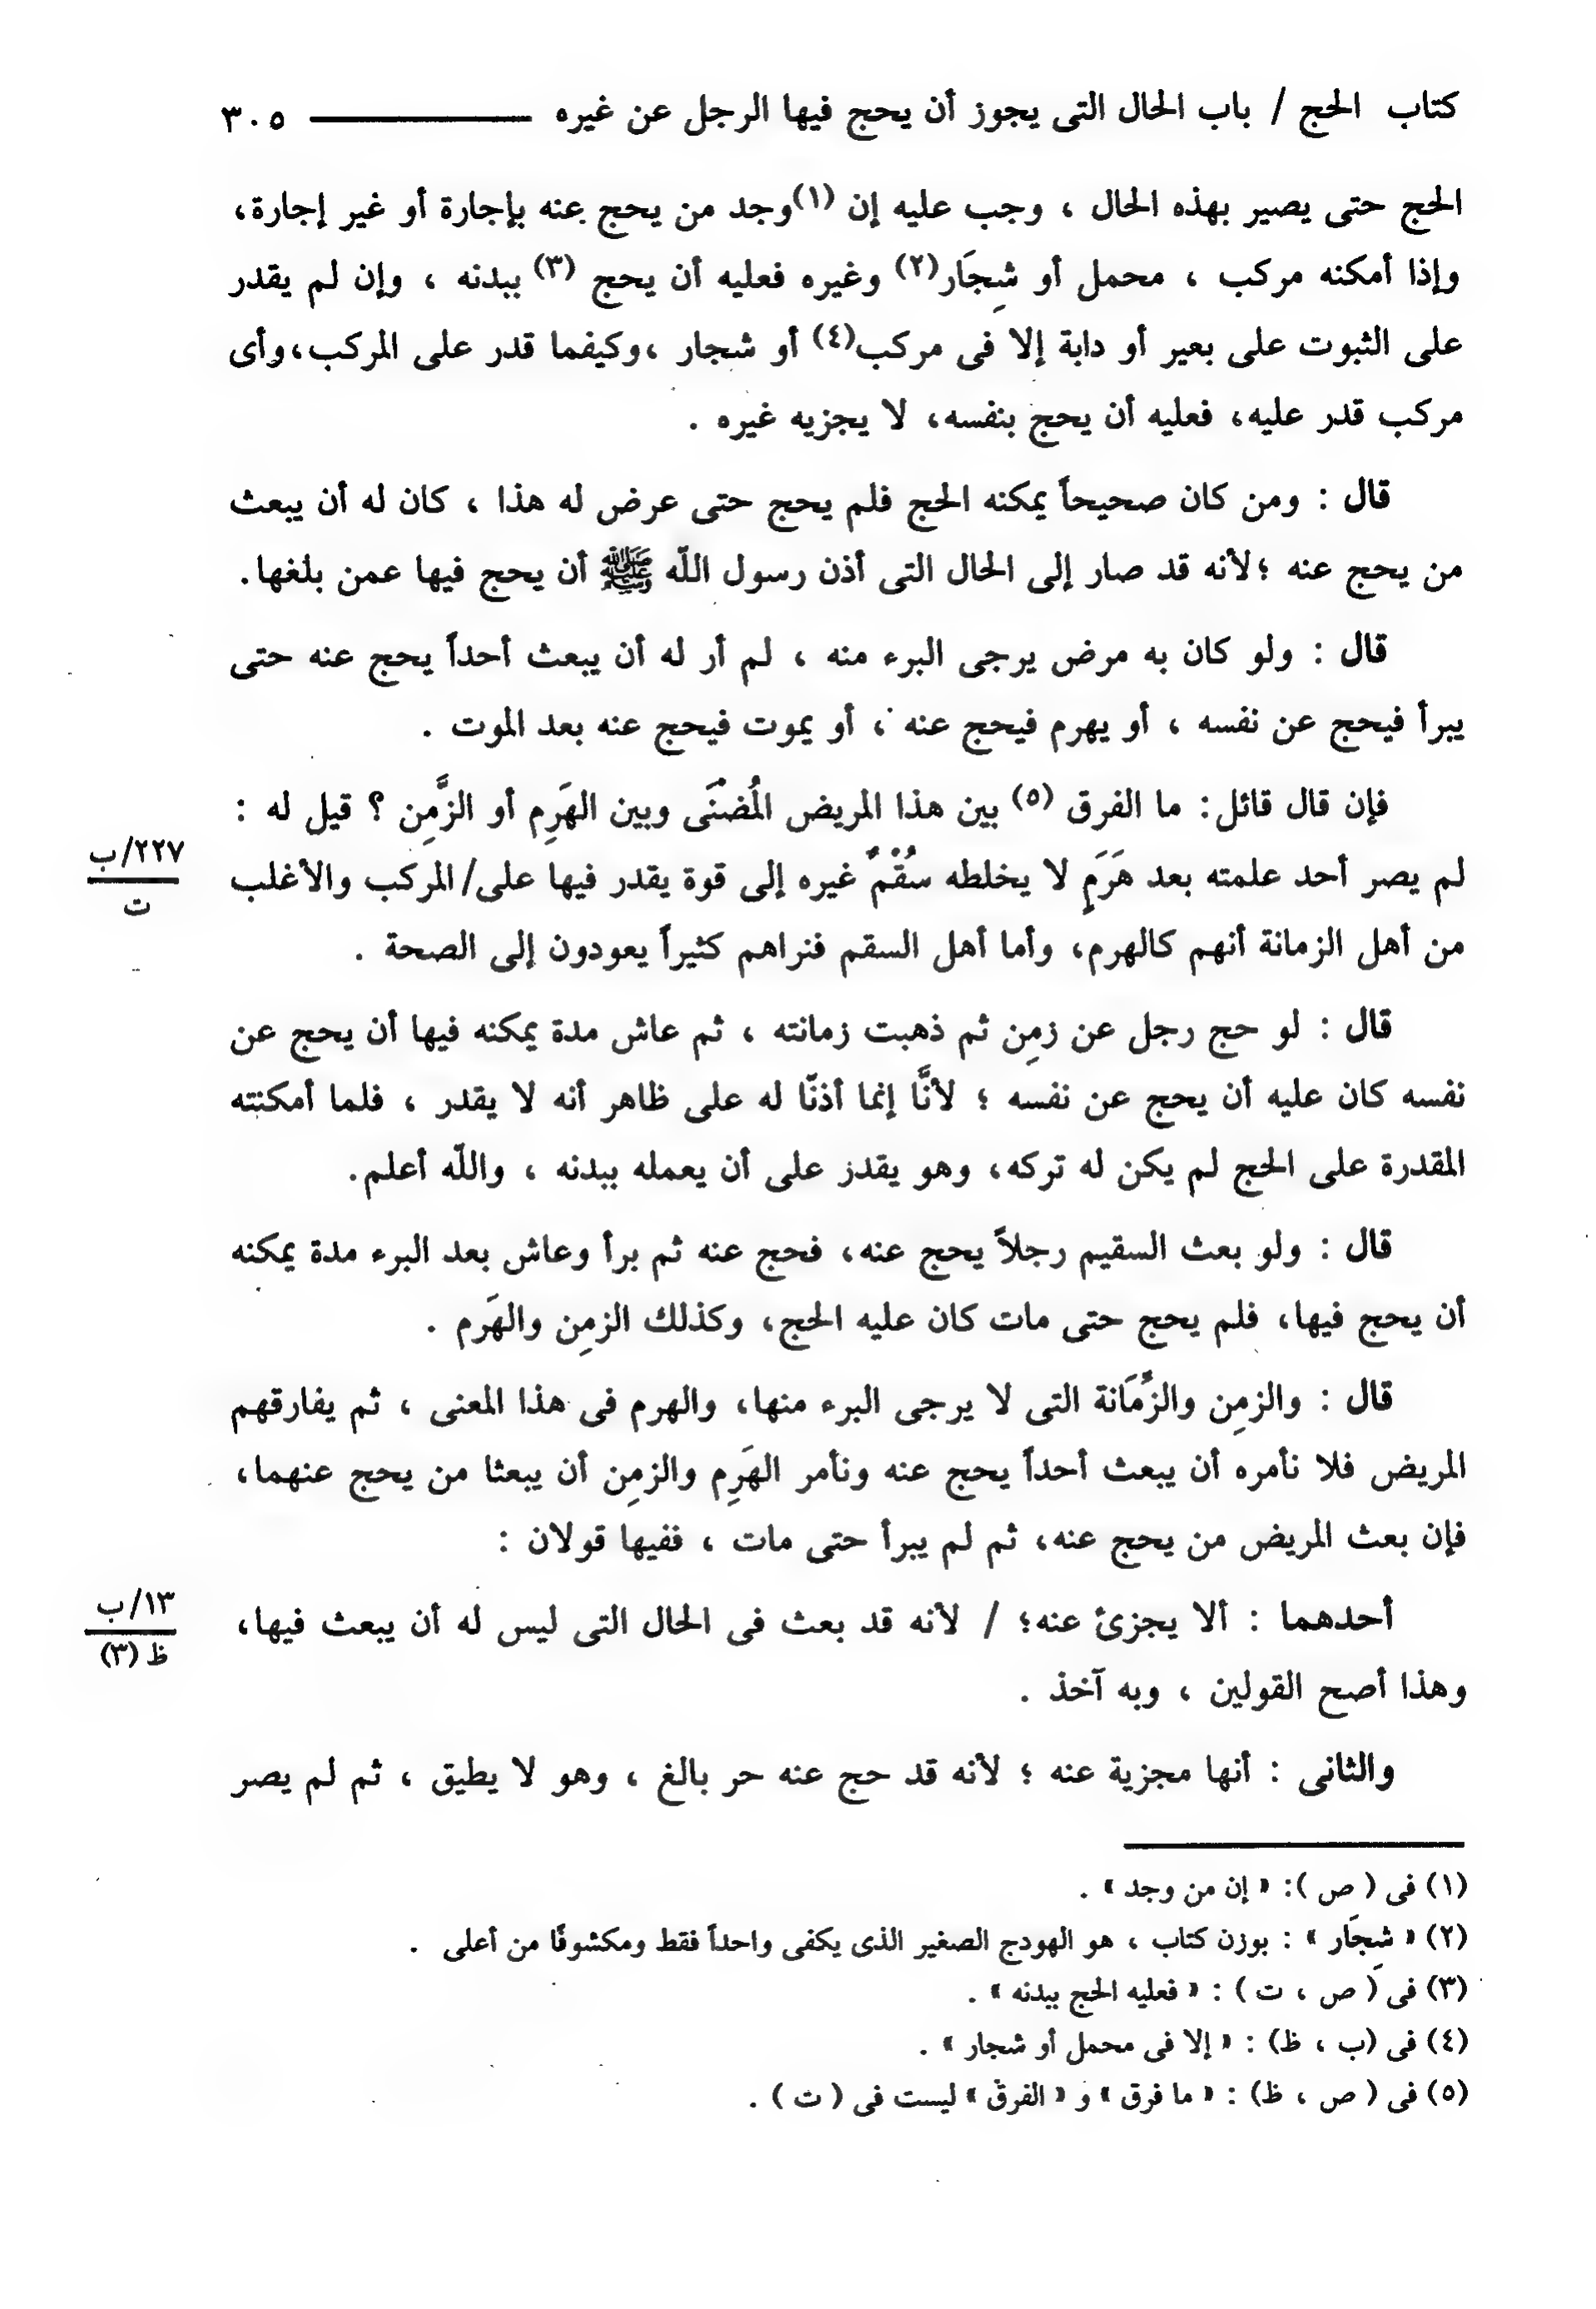 كتاب الحج / باب الحال التى يجوز أن يحج فيها الرجل عن غيره ـــــــــــ ٣٠٥
الحج حتى يصير بهذه الحال ، وجب عليه إن (١)وجد من يحج عنه بإجارة أو غير إجارة،
وإذا أمكنه مركب ، محمل أو شِجَار(٢) وغيره فعليه أن يحج (٣) ببدنه ، وإن لم يقدر
على الثبوت على بعير أو دابة إلا فى مركب(٤) أو شجار ،وكيفما قدر على المركب،وأى
مركب قدر عليه، فعليه أن يحج بنفسه، لا يجزيه غيره .
قال : ومن كان صحيحاً يمكنه الحج فلم يحج حتى عرض له هذا ، كان له أن يبعث
من يحج عنه ؛لأنه قد صار إلى الحال التى أذن رسول اللّه ﷺ أن يحج فيها عمن بلغها.
قال : ولو كان به مرض يرجى البرء منه ، لم أر له أن يبعث أحداً يحج عنه حتى
يبرأ فيحج عن نفسه ، أو يهرم فيحج عنه ، أو يموت فيحج عنه بعد الموت .
فإن قال قائل: ما الفرق (٥) بين هذا المريض المُضْنَى وبين الهَرِم أو الزَّمِن ؟ قيل له :
٢٢٧/ب
ت
لم يصر أحد علمته بعد هَرَمٍ لا يخلطه سُقْمٌ غيره إلى قوة يقدر فيها على/ المركب والأغلب
من أهل الزمانة أنهم كالهرم، وأما أهل السقم فنراهم كثيراً يعودون إلى الصحة .
قال : لو حج رجل عن زمِن ثم ذهبت زمانته ، ثم عاش مدة يمكنه فيها أن يحج عن
نفسه كان عليه أن يحج عن نفسه ؛ لأنَّا إنما أذنّا له على ظاهر أنه لا يقدر ، فلما أمكنته
المقدرة على الحج لم يكن له تركه، وهو يقدر على أن يعمله ببدنه ، واللّه أعلم.
قال : ولو بعث السقيم رجلاً يحج عنه، فحج عنه ثم برأ وعاش بعد البرء مدة يمكنه
أن يحج فيها، فلم يحج حتى مات كان عليه الحج، وكذلك الزمِن والهَرم .
قال : والزمِن والزَّمَانة التى لا يرجى البرء منها، والهرم فى هذا المعنى ، ثم يفارقهم
المريض فلا نأمره أن يبعث أحداً يحج عنه ونأمر الهَرِم والزمِن أن يبعثا من يحج عنهما،
فإن بعث المريض من يحج عنه، ثم لم يبرأ حتى مات ، ففيها قولان :
١٣/ب
ظ (٣)
أحدهما : ألا يجزئ عنه؛ / لأنه قد بعث فى الحال التى ليس له أن يبعث فيها،
وهذا أصح القولين ، وبه آخذ .
والثانى : أنها مجزية عنه ؛ لأنه قد حج عنه حر بالغ ، وهو لا يطيق ، ثم لم يصر
(١) فى ( ص ): « إن من وجد » .
(٢) « شِجَار » : بوزن كتاب ، هو الهودج الصغير الذى يكفى واحداً فقط ومكشوفًا من أعلى .
(٣) فى ( ص ، ت ) : « فعليه الحج ببدنه » .
(٤) فى (ب ، ظ) : « إلا فى محمل أو شجار » .
(٥) فى ( ص ، ظ) : « ما فرق » و « الفرق » ليست فى ( ت ) .